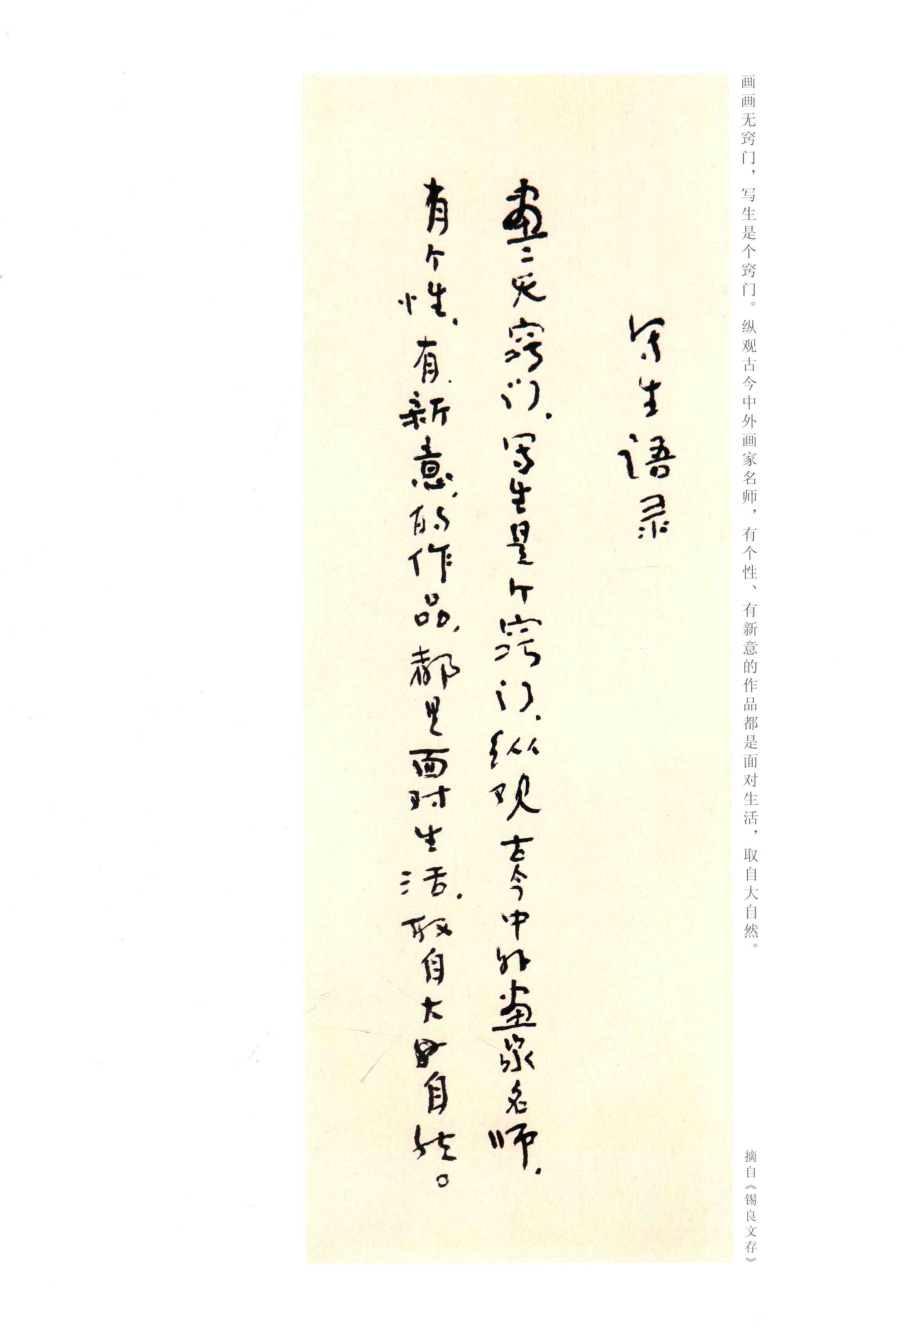 画画无窍门，写生是个窍门。纵观古今中外画家名师，有个性、有新意的作品都是面对生活，取自大自然。
摘自《锡良文存》
写生语录
画〻无窍门，写生是个窍门，纵观古今中外画家名师，
有个性，有新意的作品，都是面对生活，取自大自然。